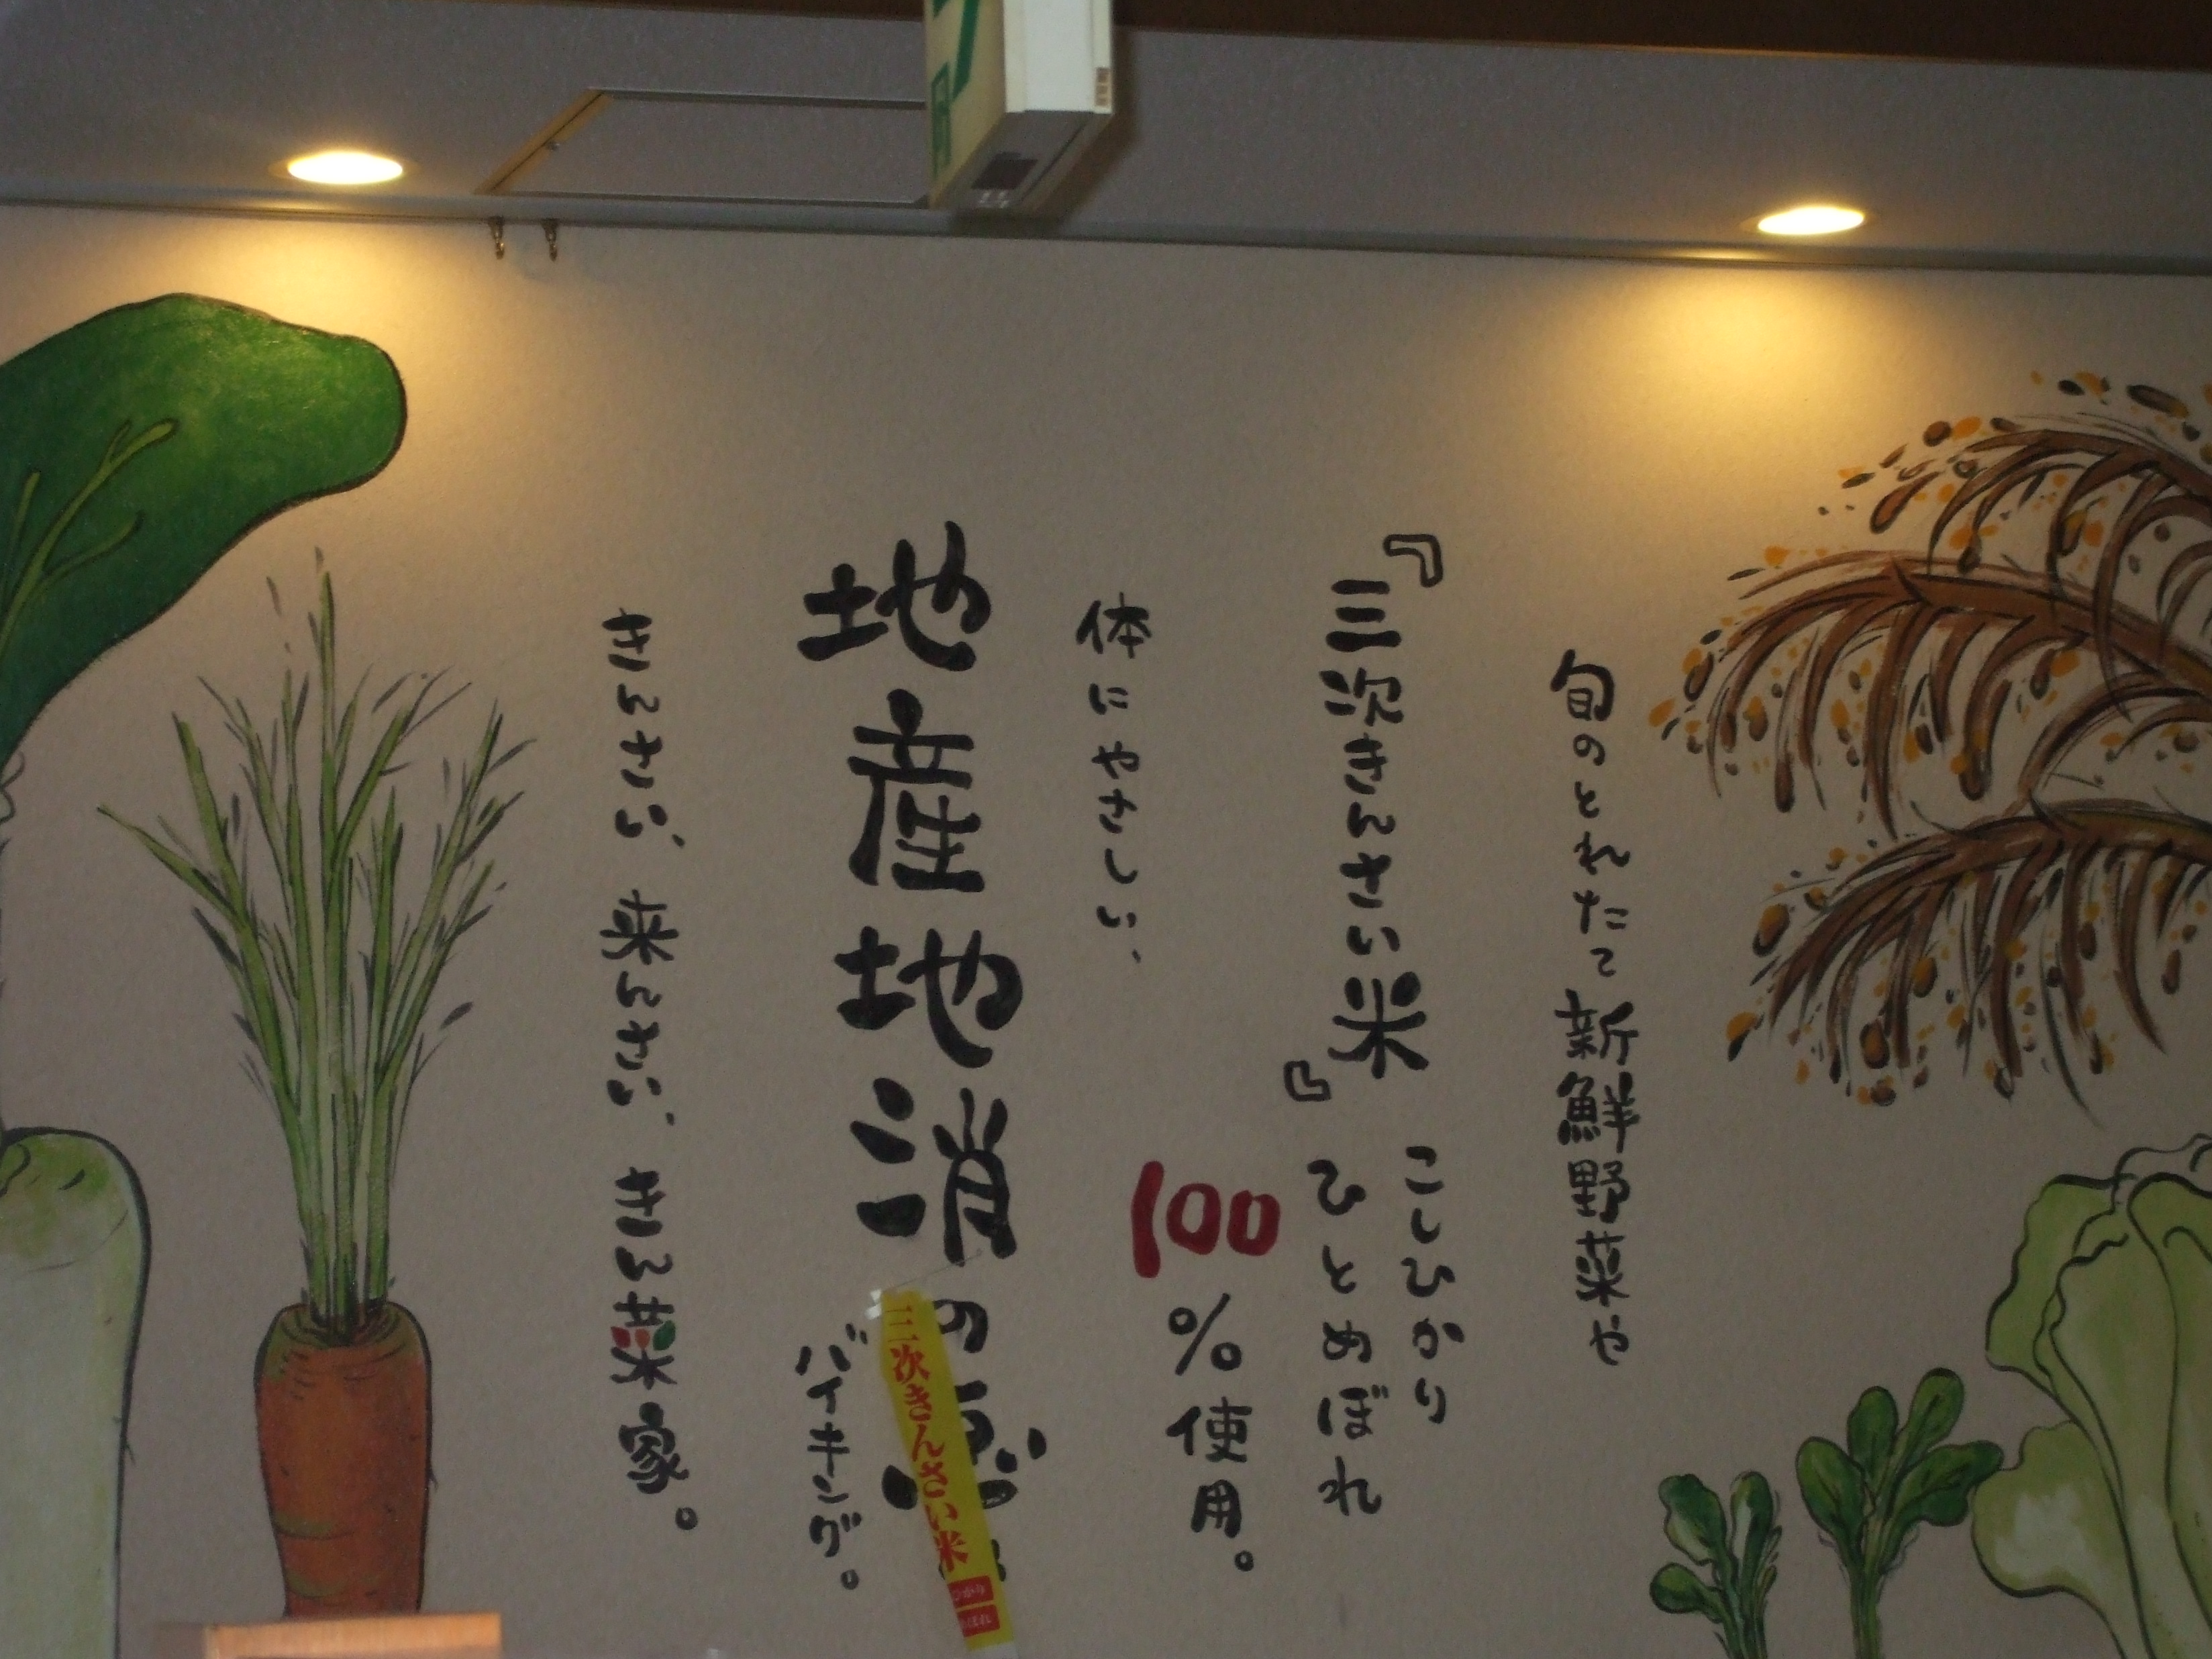 旬のとれたて新鮮野菜や
『三次きんさい米』
こしひかり
ひとめぼれ
100%使用。
体にやさしい、
地産地消の
バイキング。
きんさい、来んさい、きん菜家。
三次きんさい米